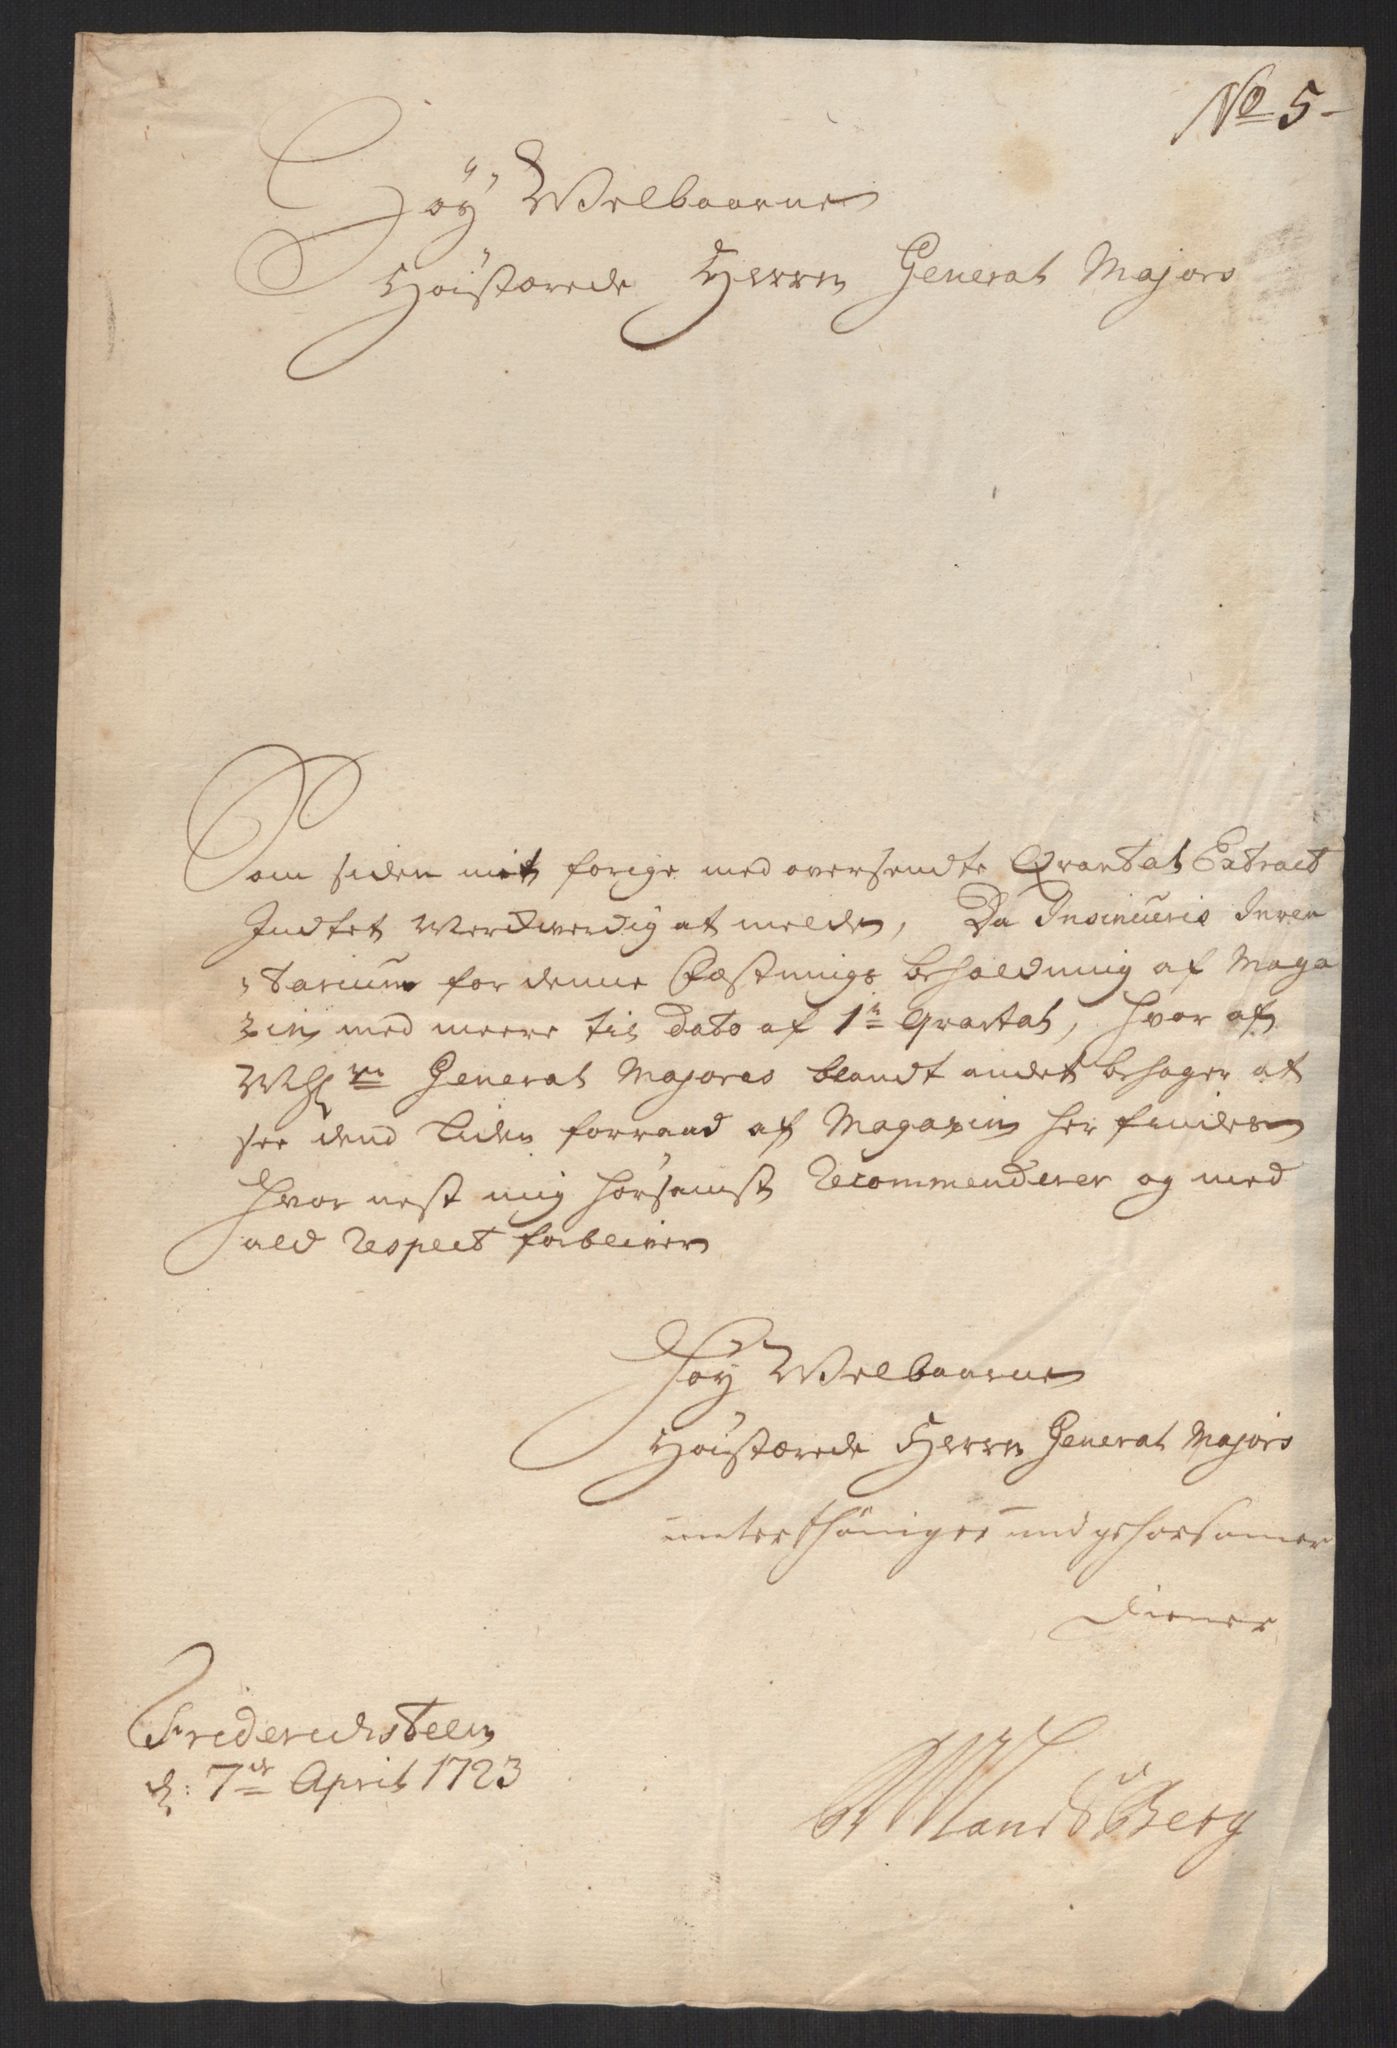 No 5-
Høÿ Welbaarne
Høistærede Herrn General Majors
Som siden mit forige med oversendte Qvartal Extract
Indtet Merckverdig at melde, Da Insinueris Inven
tarium for denne Fæstnings beholdning af Maga
zin med meere til Dato af 1te Qvartal, hvor af
General Majores blandt andet behager at
see dend liden forraad af Magazin her findes
hvor nest mig hørsamst Recommenderer og med
ald Respect forbliver
Høÿ Welbaarne
Høistærede Herrn General Majors
unterthäniger und gehorsamer
diener
Friderichsteen
d: 7de April 1723
Landsberg